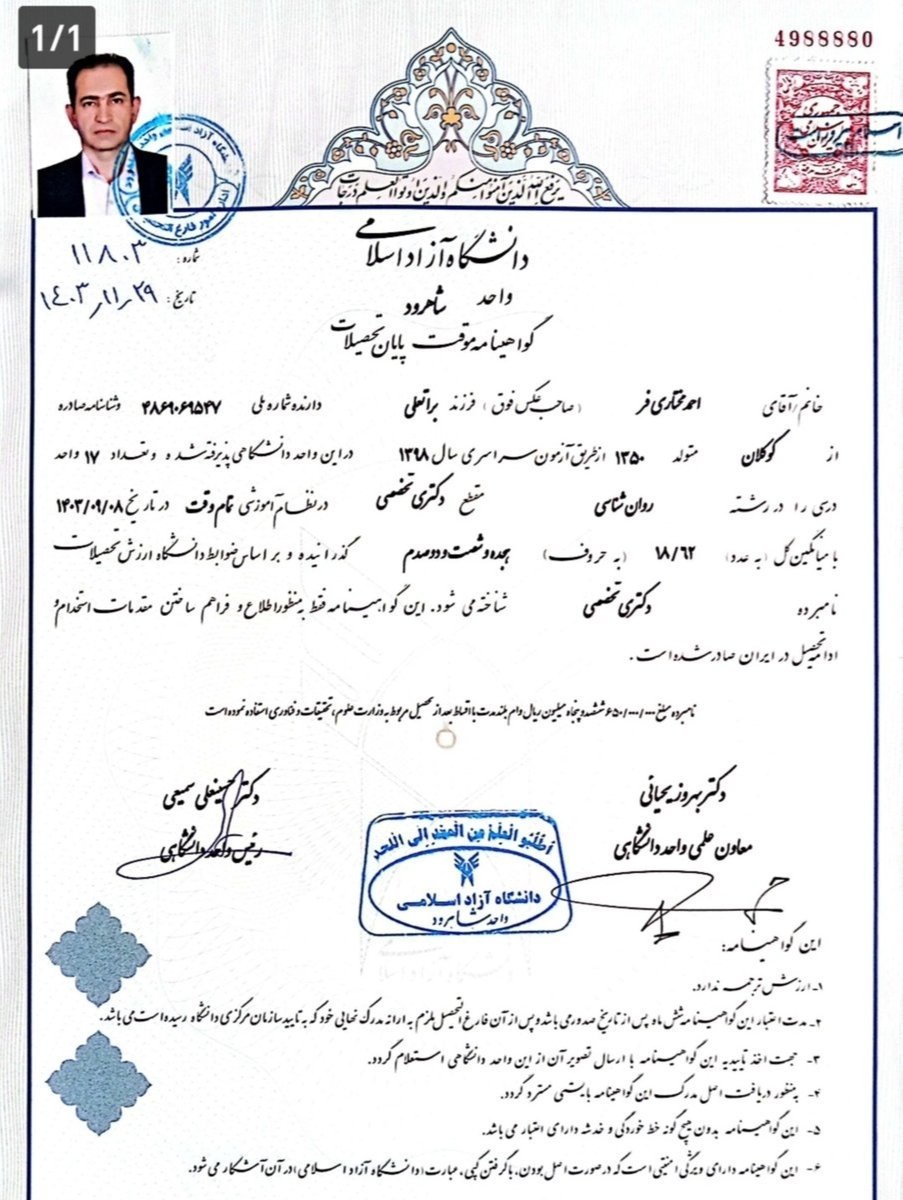 1/1
4988880
یرفع الله الذین آمنوا منکم والذین اوتوا العلم درجات
دانشگاه آزاد اسلامی
واحد شاهرود
گواهینامه موقت پایان تحصیلات
شماره: ۱۱۸۰۳
تاریخ: ۱۴۰۳/۱۱/۲۹
خانم/آقای احمد مختاری فر (صاحب عکس فوق) فرزند براتعلی دارنده شماره ملی ۴۸۶۹۰۶۹۵۴۷ و شناسنامه صادره
از کوکلان متولد ۱۳۵۰ از طریق آزمون سراسری سال ۱۳۹۸ در این واحد دانشگاهی پذیرفته شده و تعداد ۱۷ واحد
درسی را در رشته روان شناسی مقطع دکتری تخصصی در نظام آموزشی تمام وقت در تاریخ ۱۴۰۳/۰۹/۰۸
با میانگین کل (به عدد) ۱۸/۶۲ (به حروف) هجده و شصت و دو صدم گذرانیده و بر اساس ضوابط دانشگاه ارزش تحصیلات
نامبرده دکتری تخصصی شناخته می شود. این گواهینامه فقط به منظور اطلاع و فراهم ساختن مقدمات استخدام و
ادامه تحصیل در ایران صادر شده است.
نامبرده مبلغ ۶۵۰/۰۰۰/۰۰۰ ششصد و پنجاه میلیون ریال وام بلندمدت با اقساط بعد از تحصیل مربوط به وزارت علوم، تحقیقات و فناوری استفاده نموده است
دکتر بهروز یحیائی
معاون علمی واحد دانشگاهی
دکتر حسینعلی سمیعی
رئیس واحد دانشگاهی
اطلبوا العلم من المهد الی اللحد
دانشگاه آزاد اسلامی
واحد شاهرود
این گواهینامه:
۱- ارزش ترجمه ندارد.
۲- مدت اعتبار این گواهینامه شش ماه پس از تاریخ صدور می باشد و پس از آن فارغ التحصیل ملزم به ارائه مدرک نهایی خود که به تایید سازمان مرکزی دانشگاه رسیده است می باشد.
۳- جهت اخذ تاییدیه این گواهینامه با ارسال تصویر آن از این واحد دانشگاهی استعلام گردد.
۴- به منظور دریافت اصل مدرک این گواهینامه بایستی مسترد گردد.
۵- این گواهینامه بدون هیچ گونه خط خوردگی و خدشه دارای اعتبار می باشد.
۶- این گواهینامه دارای ویژگی امنیتی است که در صورت اصل بودن، با گرفتن کپی، عبارت (دانشگاه آزاد اسلامی) در آن آشکار می شود.